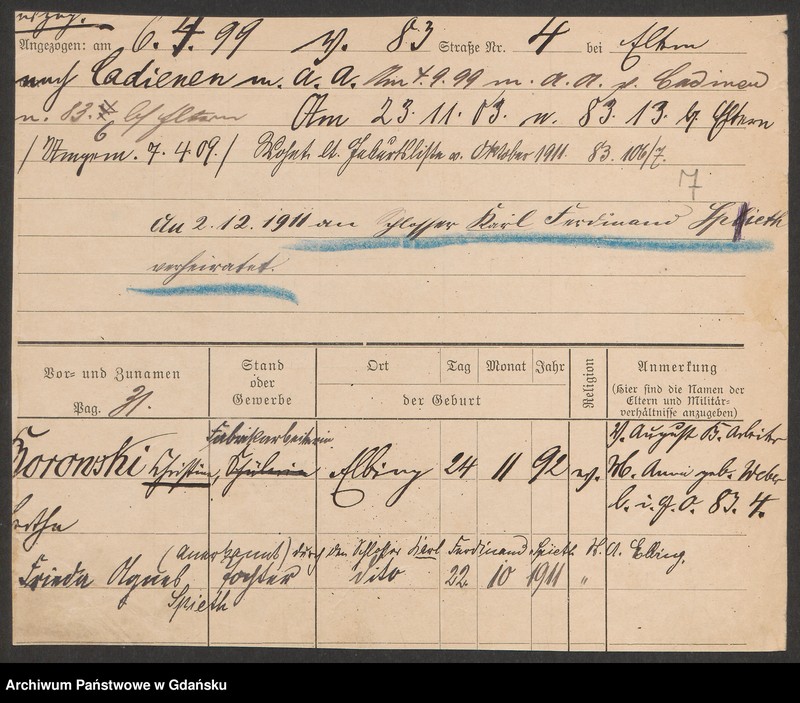 Angezogen: am 6.4.99 v. 83 Straße Nr. 4 bei Eltern
nach Cadienen m. A. A. Am 4.9.99 m. A. A. v. Cadinen
n. 83. 4/6 bei Eltern Am 23.11.03. n. 83.13. b. Eltern
/ Umgem. 7.4.09. / Wohnt lt. Geburtsliste v. Oktober 1911 83. 106/7.
7
Am 2.12.1911 an Schlosser Karl Ferdinand Spieth
verheiratet.
Vor- und Zunamen
Pag. 31.
Stand
oder
Gewerbe
Ort Tag Monat Jahr
der Geburt
Religion
Anmerkung
(Hier sind die Namen der
Eltern und Militär-
verhältnisse anzugeben)
Fabrikarbeiterin V. August B. Arbeiter
Borowski Christine, Schülerin Elbing 24 11 92 ev. M. Anna geb. Weber
b. i. g. O. 83. 4.
Bertha
(anerkannt) durch den Schlosser Karl Ferdinand Spieth St. A. Elbing.
Frieda Agnes Tochter dito 22. 10 1911 "
Spieth
Archiwum Państwowe w Gdańsku